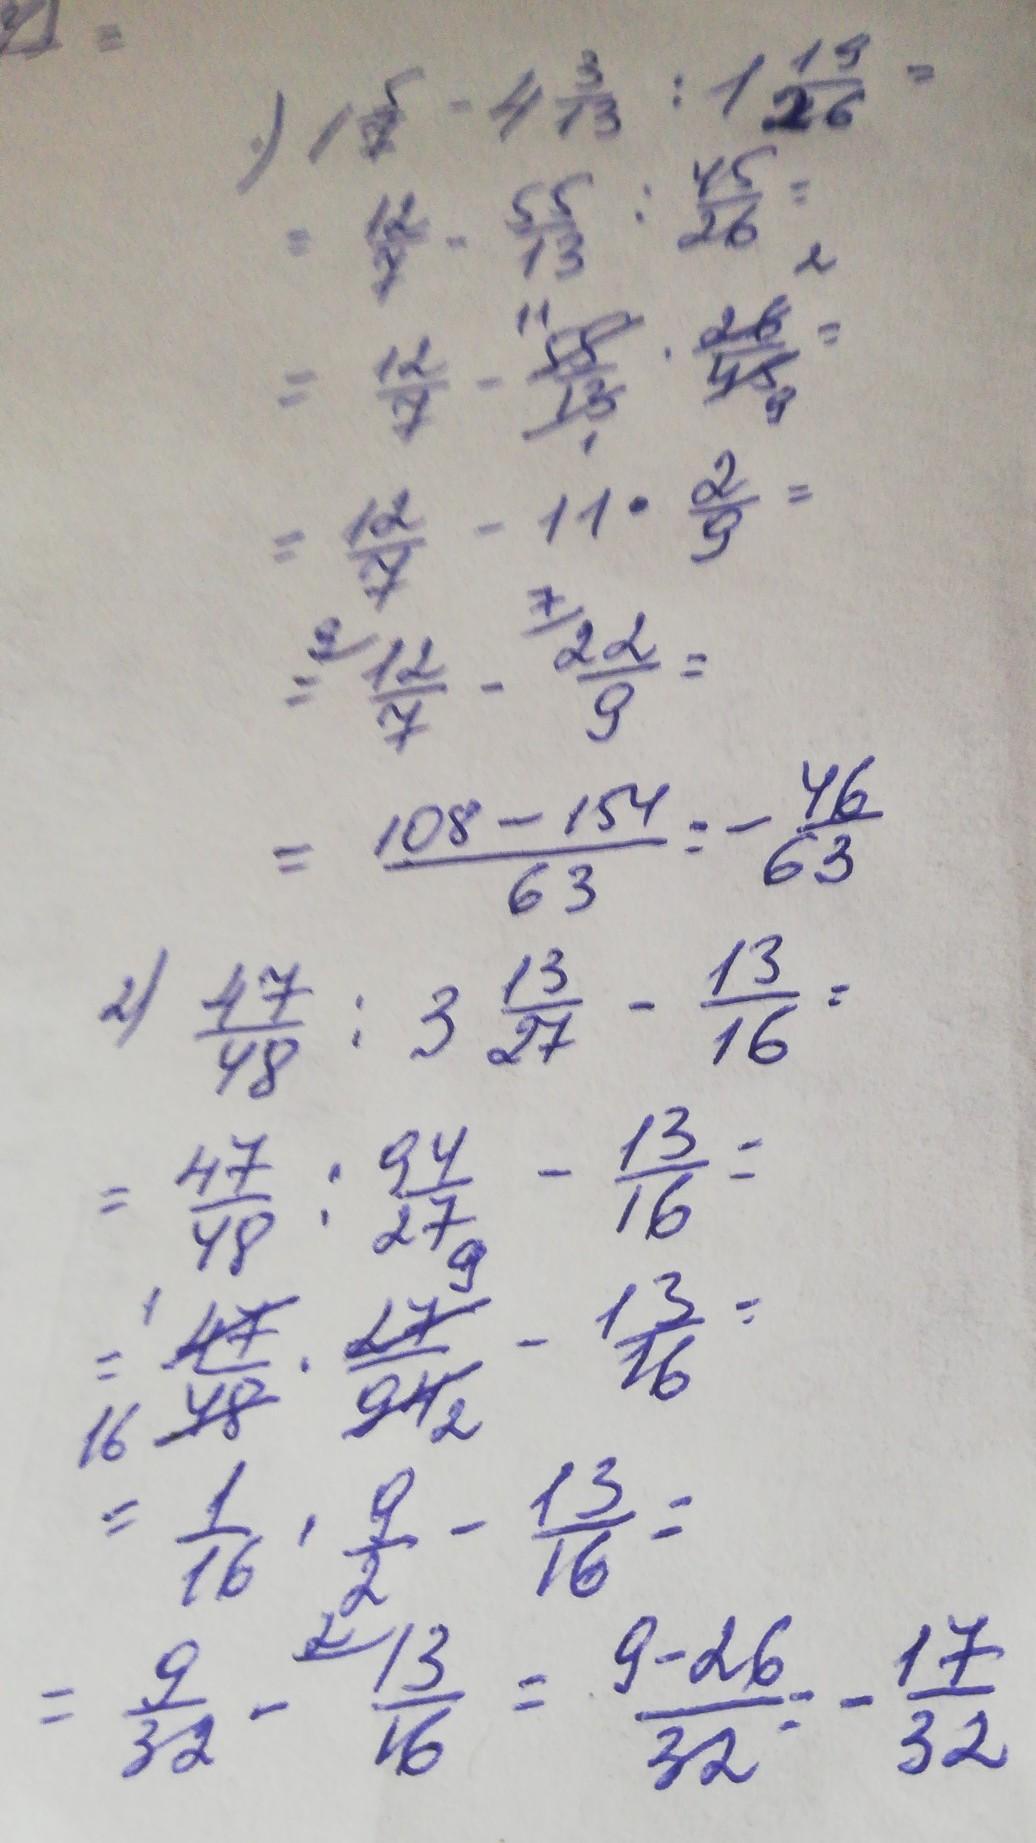 =
1) 1 5/7 - 4 3/13 : 1 19/26 =
= 12/7 - 55/13 : 45/26 =
= 12/7 - 55/13 · 26/45 = 11 1 2 9
= 12/7 - 11 · 2/9 =
= 9/ 12/7 - 7/ 22/9 =
= (108 - 154)/63 = - 46/63
2) 47/48 : 3 13/27 - 13/16 =
= 47/48 : 94/27 - 13/16 =
= 47/48 · 27/94 - 13/16 = 1 16 9 2
= 1/16 · 9/2 - 13/16 =
= 9/32 - 2/ 13/16 = (9-26)/32 = - 17/32